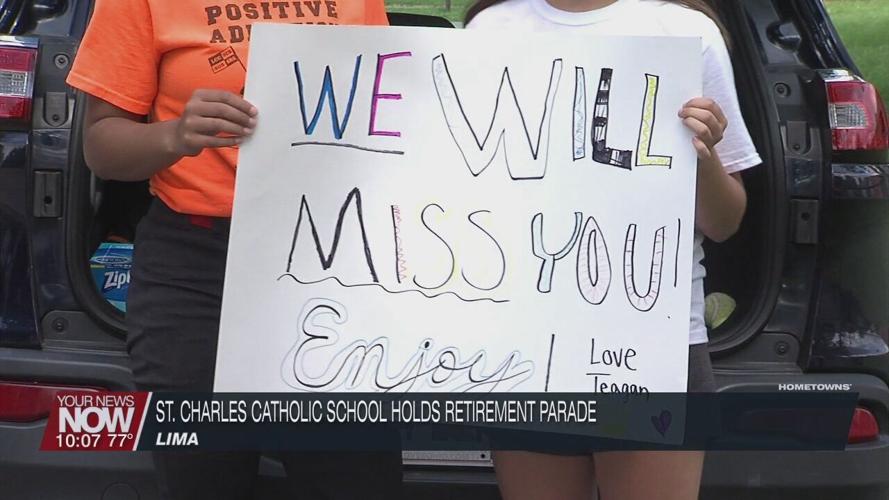 POSITIVE
WE WILL
MISS YOU!
Enjoy!
Love
Teagan
HOMETOWNS
YOUR NEWS
NOW
10:07 77°
ST. CHARLES CATHOLIC SCHOOL HOLDS RETIREMENT PARADE
LIMA